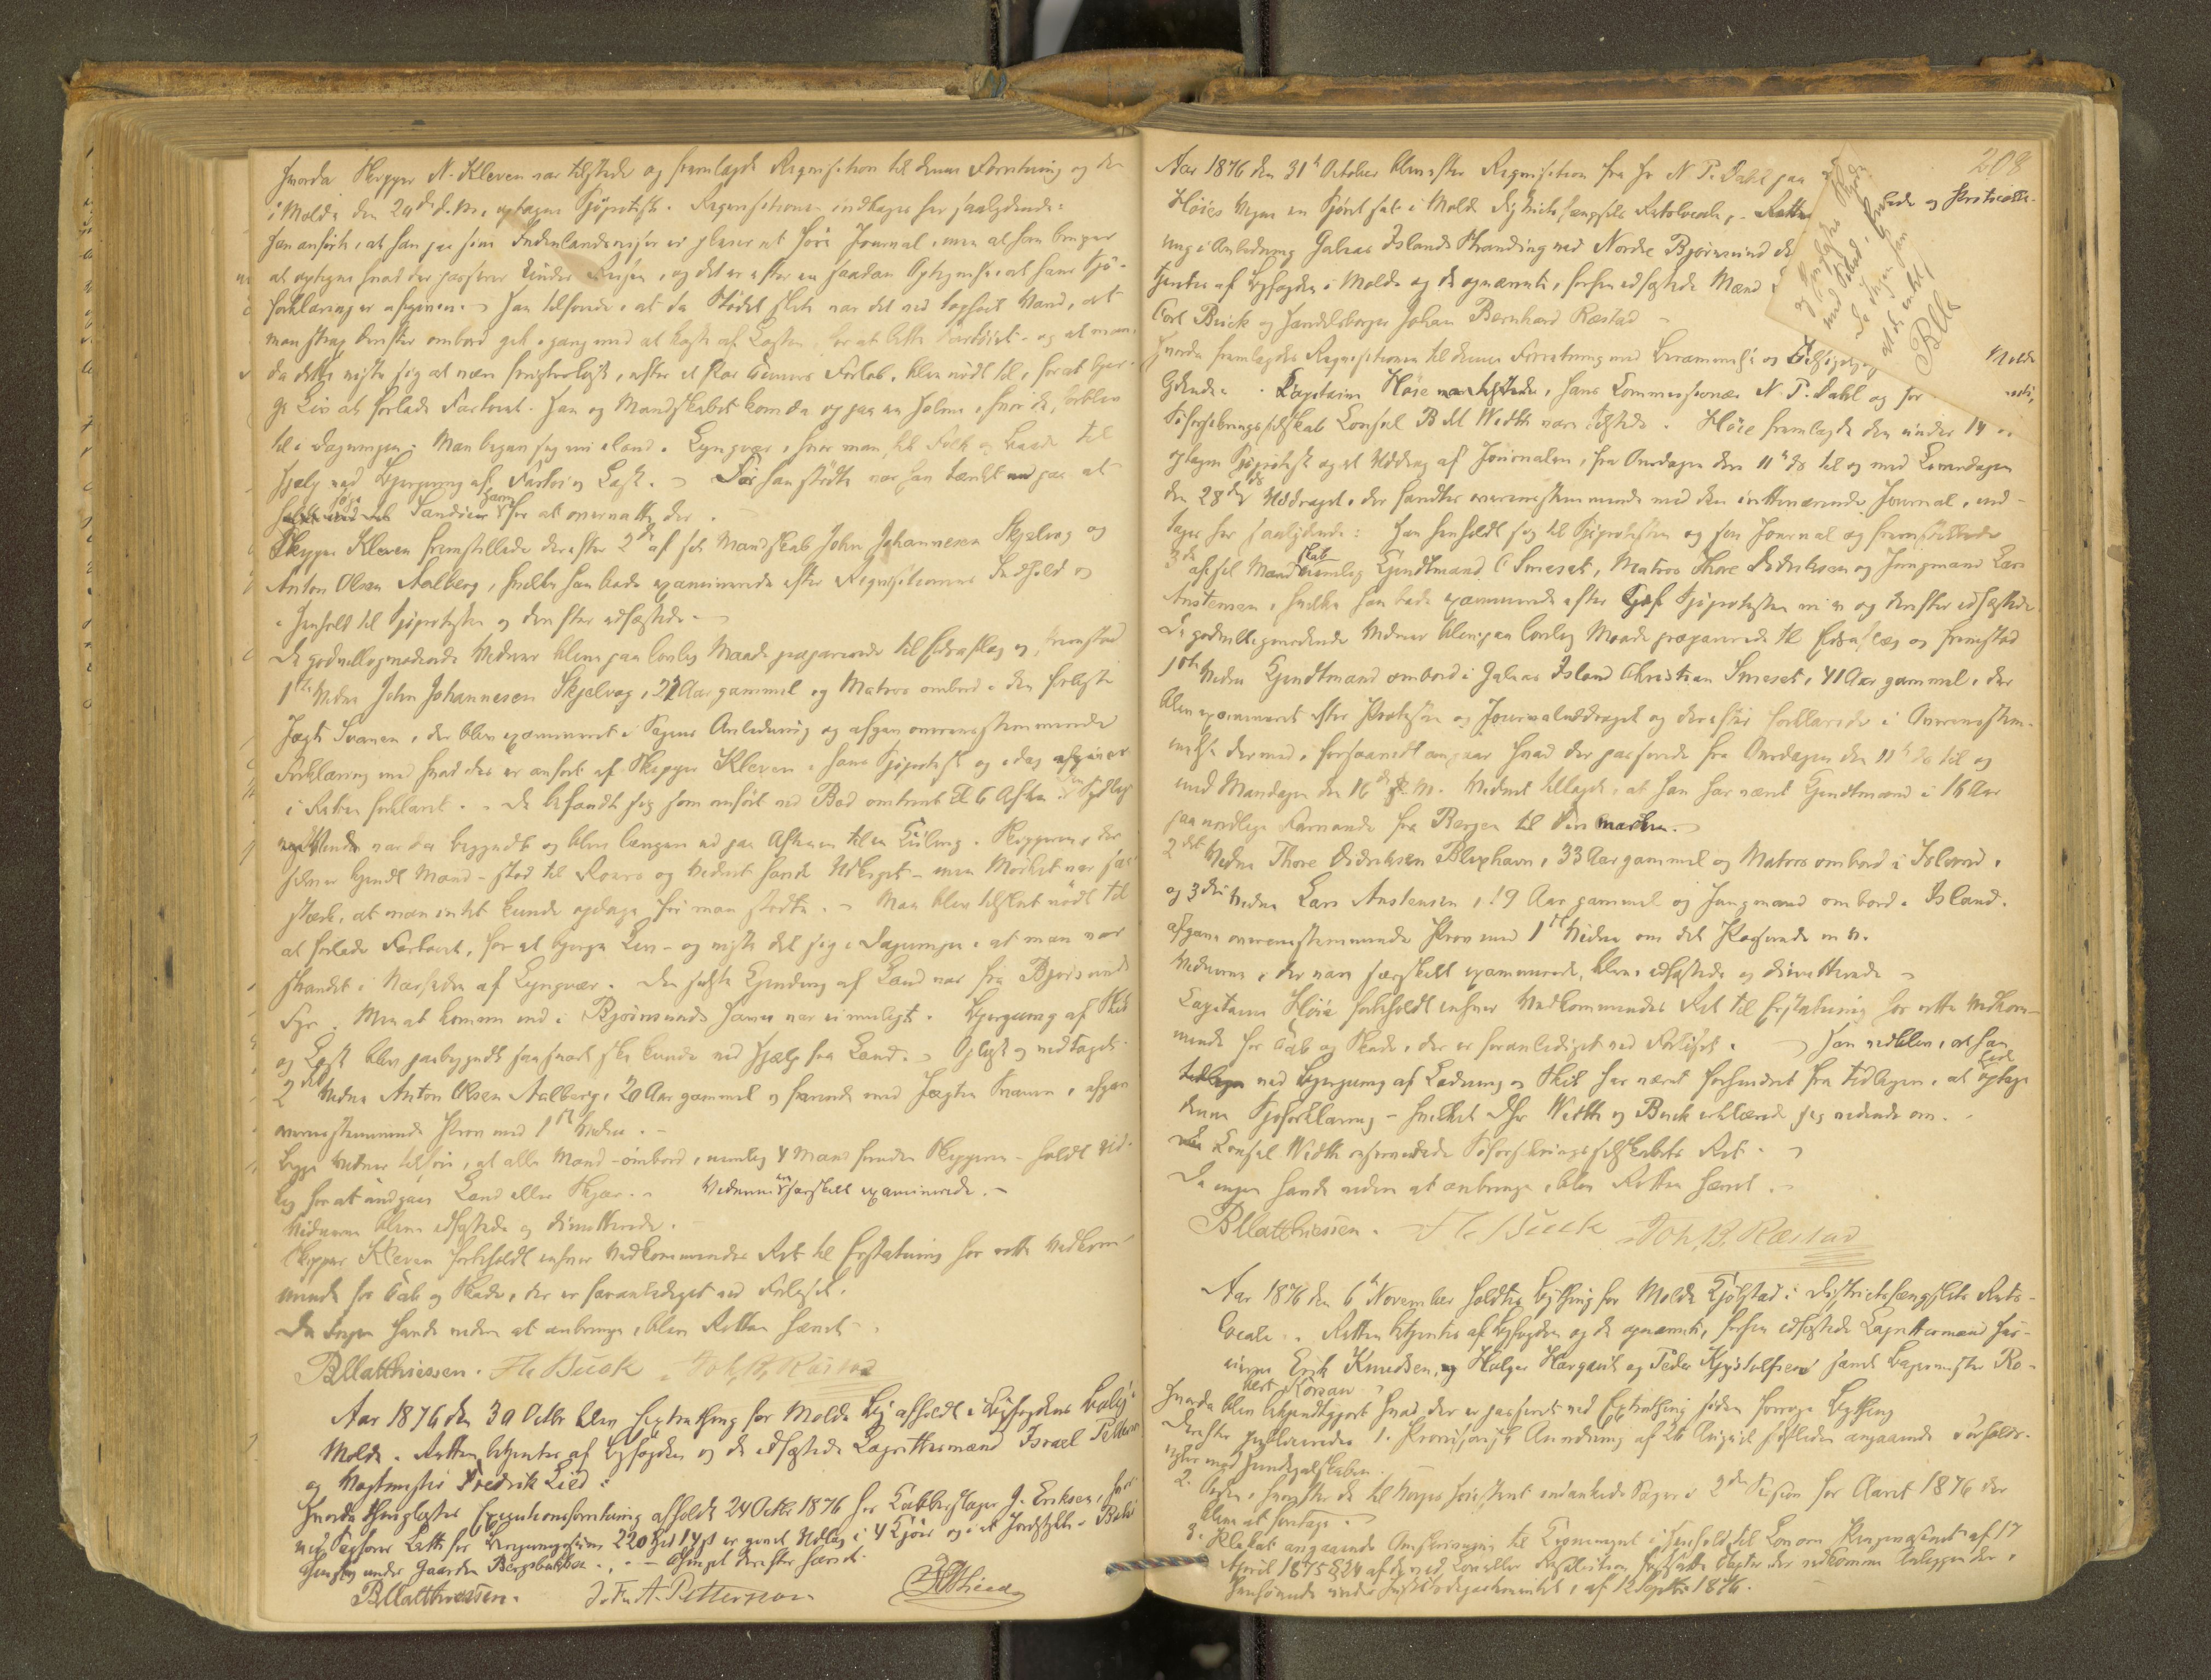 hvorda Skipper N. Kleven var tilstede og fremlagde Requisition til denne Forretning og den
i Molde den 24de d. M. optagne Søprotest. Requisitionen indtages her saalydende:
Han anførte, at han paa sine Indenlandsreiser ei pleier at føre Journal, men at han bruger
at optegne hvad der passerer under Reisen, og det er efter en saadan Optegnelse at hans Sjø-
forklaring er afgiven. Han tilføiede, at da Stødet skete var det ved høieste Vand, at
man strax derefter ombord gik igang med at kaste af Lasten, for at lette Fartøiet - og at man,
da dette viste sig at være frugtesløst, efter et Par Timers Forløb, blev nødt til, for at bjer-
ge Liv at forlade Fartøiet. Han og Mandskabet kom da op paa en Holme, hvor de forblev
til i Dagningen. Man begav sig nu iland i Lyngvær, hvor man fik Folk og Baad til
Hjælp ved Bjergning af Fartøi og Last. - Før han stødte var han tænkt paa at
søge Sandøen Havn for at overnatte der.
Skipper Kleven fremstillede derefter 2de af sit Mandskab John Johannesen Skjelvog og
Anton Olsen Aalberg, hvilke han bad examinerede efter Requisitionens Indhold og
i Henhold til Sjøprotesten og derefter edfæstede. -
De godvilligmødende Vidner bleve paa lovlig Maade præparerede til Edsaflæg og fremstod
1ste Vidne John Johannesen Skjelvog, 27 Aar gammel og Matros ombord i den forliste
Jagt Svanen, der blev examineret i Sagens Anledning og afgav overensstemmende
Forklaring med hvad der er anført af Skipper Kleven i hans Sjøprotest og idag afgiven
i Retten forklaret. - De befandt sig som anført ved Bod omtrent Kl 6 Aften. Sydlig
Vinden var da begyndt og blev længere ud paa Aftenen til en Kuling. Skipperen, der
selv er kjendt Mand - stod til Roers og Vidnet havde Udkiget - men Mørket var saa
stærk, at man intet kunde opdage før man stødte. - Man blev tilsidst nødt til
at forlade Fartøiet, for at bjerge Liv - og viste det sig i Dagningen, at man var
strandet i Nærheden af Lyngvær. Den sidste Kjending af Land var fra Bjørnsund
Fyr. Men at komme ind i Bjørnsunds Havn var ei muligt. Bjergning af Skib
og Last blev paabegyndt saasnart ske kunde ved Hjælp fra Land. - Oplæst og vedtaget.
2det Vidne Anton Olsen Aalberg, 20 Aar gammel og farende med Jagten Svanen, afgav
overensstemmende Prov med 1ste Vidne. -
Begge Vidner tilføie, at alle Mand ombord, nemlig 4 Mand foruden Skipperen - holdt Ud-
kig for at undgaae Land eller Skjær. - Vidnerne særskilt examinerede. -
Vidnerne bleve edfæstede og dimitterede. -
Skipper Kleven forbeholdt enhver Vedkommende Ret til Erstatning hos rette Vedkom-
mende for Tab og Skade, der er foranlediget ved Forliset.
Da Ingen havde videre at anbringe, blev Retten hævet. -
BMatthiessen. Fr. Buck Joh. B. Ræstad
Aar 1876 den 30 Octbr blev Extrathing for Molde By afholdt i Byfogdens Bolig i
Molde. Retten betjentes af Byfogden og de edfæstede Laugrettesmænd Israel Petterson
og Vagtmester Fredrik Lied.
Hvorda thinglæstes Executionsforretning afholdt 24 Octbr 1876 hos Kobberslager J. Eriksen, hvor
ved Sagfører Leth for 220 Spd 14 sk er givet Udlæg i 4 Kjør og i et Jordstykke
under Gaarden Bergsbakken. - Thinget derefter hævet.
BMatthiessen. I. Fr. A. Petterson FLied
208
Aar 1876 den 31te October blev efter Requisition fra Hr N. P. Dahl paa
Høies Vegne en Sjøret sat i Molde Districtsfængsels Retslocale,
ning i Anledning Galeas Islands Stranding ved Nordre Bjørnsund
tjentes af Byfogden i Molde og de opnævnte, forhen edfæstede Mænd
Carl Buck og Handelsborger Johan Bernhard Ræstad -
Hvorda fremlagdes Requisitionen til denne Forretning med Berammelse og
lydende. Kaptain Høie var tilstede, hans Commissionær N. P. Dahl og for Molde
Søforsikringsselskab Consul B M Width vare tilstede. Høie fremlagde den under 14
optagne Sjøprotest og et Uddrag af Journalen, fra Onsdagen den 11te ds til og med Løverdagen
den 28de ds. Uddraget, der fandtes overensstemmende med den indtværende Journal, ind-
tages her saalydende: Han henholdt sig til Sjøprotesten og sin Journal og fremstillede
3de af sit Mandskab nemlig Kjendtmand C Smeset, Matros Thore Didriksen og Jungmand Lars
Anstensen, hvilke han bad examinerede efter Sjøprotesten m. v. og derefter edfæstede
De godvilligmødende Vidner bleve paa lovlig Maade præparerede til Edsaflæg og fremstod
1ste Vidne Kjendtmand ombord i Galeas Island Christian Smeset, 41 Aar gammel, der
blev examineret efter Protesten og Journaluddraget og derefter forklarede i Overensstem-
melse dermed, forsaavidt angaar hvad der passerede fra Onsdagen den 11te ds til og
med Mandagen den 16de d. M. Vidnet tillagde, at han har været Kjendtmand i 16 Aar
paa nordlige Farvande fra Bergen til Finmarken. -
2det Vidne Thore Didriksen Blixhavn, 33 Aar gammel og Matros ombord i Island,
og 3die Vidne Lars Anstensen, 19 Aar gammel og Jungmand ombord i Island.
afgave overensstemmende Prov med 1ste Vidne om det Passerede m. v.
Vidnerne, der vare særskilt examinerede, bleve edfæstede og dimitterede -
Captain Høie forbeholdt enhver Vedkommendes Ret til Erstatning hos rette Vedkom-
mende for Tab og Skade, der er foranlediget ved Forliset. - Han vedblev, at han
ved Bjergning af Ladning og Skib har været forhindret fra tidligere, at lade optage
denne Sjøforklaring - hvilket DHr Width og Buck erklærede sig vidende om.
Consul Width reserverede Søforsikringsselskabets Ret. -
Da ingen havde videre at anbringe, blev Retten hævet. -
BMatthiessen. Fr. Buck Joh. B. Ræstad
Aar 1876 den 6te November holdtes Bything for Molde Kjøbstad i Districtsfængslets Rets-
locale. Retten betjentes af Byfogden og de opnævnte, forhen edfæstede Laugrettesmænd Her-
rerne Erik Knudsen, Holger Hargaut og Peder Kristoffersen samt Bagermester Ro-
bert Korsan
Hvorda blev bekjendtgjort hvad der er passeret ved Extrathing siden forrige Bything
Derefter publiceredes 1. Provisorisk Anordning af 26 August sidstleden angaaende Forholds-
regler mod Hundegalskaben.
2. Orden, hvorefter de til Norges Høiesteret indankede Sager i 2den Session for Aaret 1876 der
blive at foretage. -
3. Plakat angaaende Omskrivning til Kronemynt i Henhold til Loven om Pengevæsenet af 17
April 1875 § 24 af de ved Lov eller Resolution fastsatte Afgifter der vedkomme Anliggender,
henhørende under Justitsdepartementet, af 12 Septbr 1876.